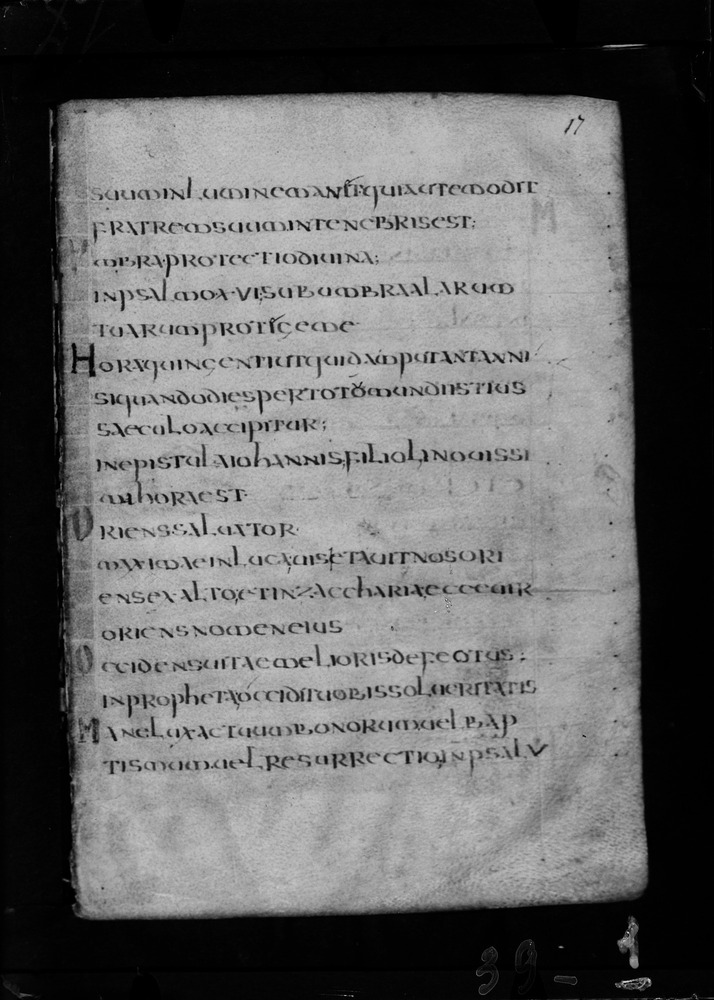 17
suum in lumine manet qui autem odit
fratrem suum in tenebris est;
Umbra protectio diuina;
in psalmo XVI sub umbra alarum
tuarum protege me
Hora quingenti ut quidam putant anni
siquando dies per totum mundi istius
saeculo accipitur;
in epistula Iohannis, filioli nouissi
ma hora est
Oriens saluator
maxime in Luca uisetauit nos ori
ens ex alto, et in Zaccharia, ecce uir
oriens nomen eius
Occidens uitae melioris defectus;
in propheta occidit uobis sol ueritatis
Mane lux actuum bonorum uel bap
tismum uel resurrectio, in psal V
39 - 1